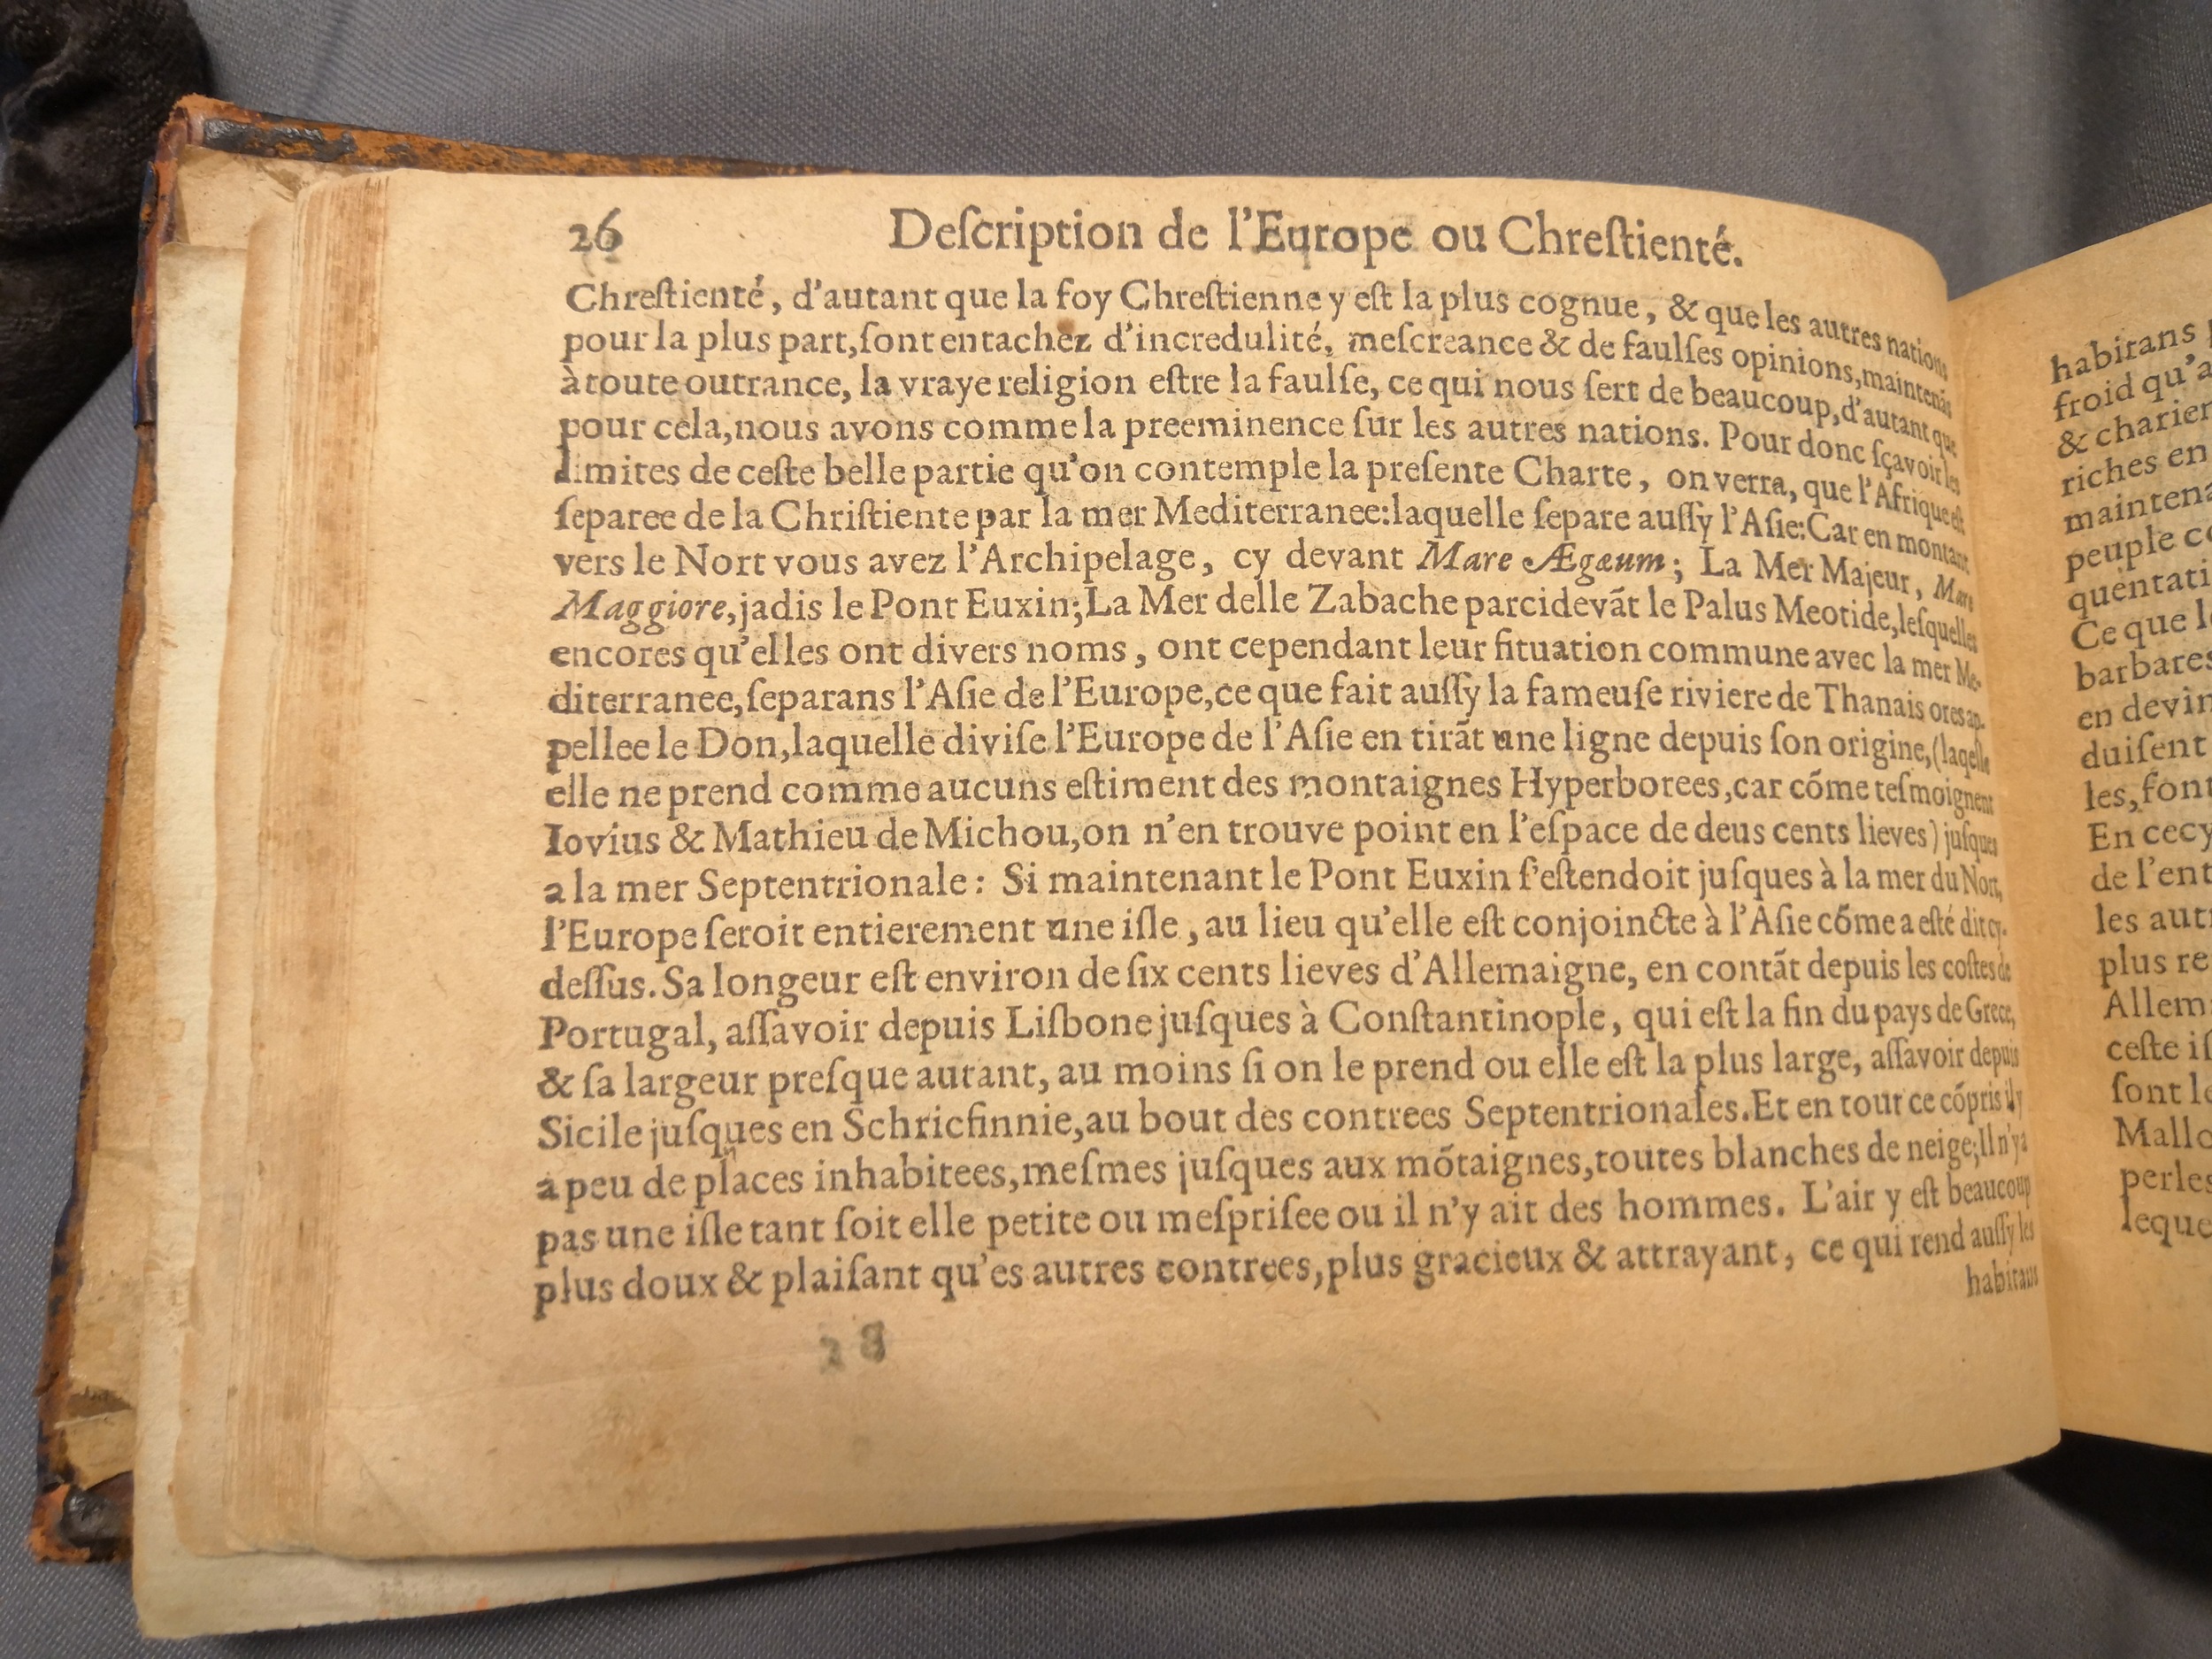 26 Deſcription de l'Europe ou Chreſtienté.
Chreſtienté, d'autant que la foy Chreſtienne y eſt la plus cognue, & que les autres nations
pour la plus part, ſont entachez d'incredulité, meſcreance & de faulſes opinions, maintenãs
à toute outrance, la vraye religion eſtre la faulſe, ce qui nous ſert de beaucoup, d'autant que
pour cela, nous avons comme la preeminence ſur les autres nations. Pour donc ſçavoir les
limites de ceſte belle partie qu'on contemple la preſente Charte, on verra, que l'Afrique eſt
ſeparee de la Chriſtiente par la mer Mediterranee: laquelle ſepare auſſy l'Aſie: Car en montant
vers le Nort vous avez l'Archipelage, cy devant Mare Ægæum; La Mer Majeur, Mare
Maggiore, jadis le Pont Euxin; La Mer delle Zabache parcidevãt le Palus Meotide, leſquelles
encores qu'elles ont divers noms, ont cependant leur ſituation commune avec la mer Me-
diterranee, ſeparans l'Aſie de l'Europe, ce que fait auſſy la fameuſe riviere de Thanais ores ap-
pellee le Don, laquelle diviſe l'Europe de l'Aſie en tirãt une ligne depuis ſon origine, (laqelle
elle ne prend comme aucuns eſtiment des montaignes Hyperborees, car cõme teſmoignent
Iovius & Mathieu de Michou, on n'en trouve point en l'eſpace de deus cents lieves) juſques
a la mer Septentrionale: Si maintenant le Pont Euxin ſ'eſtendoit juſques à la mer du Nort,
l'Europe ſeroit entierement une iſle, au lieu qu'elle eſt conjoincte à l'Aſie cõme a eſté dit cy-
deſſus. Sa longeur eſt environ de ſix cents lieves d'Allemaigne, en contãt depuis les coſtes de
Portugal, aſſavoir depuis Liſbone juſques à Conſtantinople, qui eſt la fin du pays de Grece,
& ſa largeur preſque autant, au moins ſi on le prend ou elle eſt la plus large, aſſavoir depuis
Sicile juſques en Schricfinnie, au bout des contrees Septentrionales. Et en tout ce cõpris il y
a peu de places inhabitees, meſmes juſques aux mõtaignes, toutes blanches de neige; Il n'y a
pas une iſle tant ſoit elle petite ou meſpriſee ou il n'y ait des hommes. L'air y eſt beaucoup
plus doux & plaiſant qu'es autres contrees, plus gracieux & attrayant, ce qui rend auſſy les
habitans
habitans
froid qu'a
& charier
riches en
maintena
peuple co
quentati
Ce que l
barbares
en devin
duiſent
les, font
En cecy
de l'ent
les aut
plus re
Allem
ceſte iſ
ſont le
Mallo
perles
leque